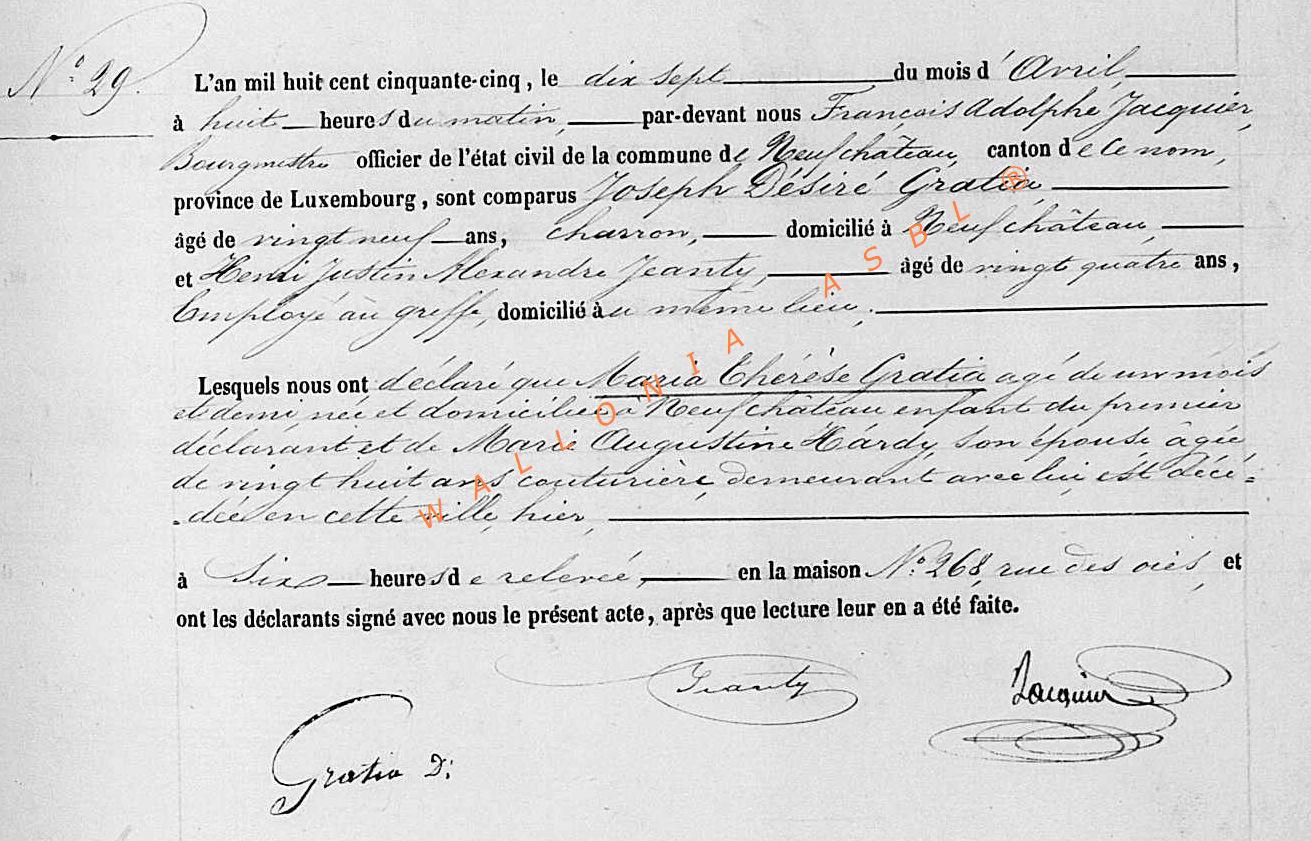 N.° 29.
L'an mil huit cent cinquante-cinq, le dix sept du mois d'Avril
à huit heures du matin, par-devant nous François Adolphe Jacquier,
Bourgmestre officier de l'état civil de la commune de Neufchâteau, canton de ce nom,
province de Luxembourg, sont comparus Joseph Désiré Gratia
âgé de vingt neuf ans, charron, domicilié à Neufchâteau,
et Henri Justin Alexandre Jeanty, âgé de vingt quatre ans,
Employé au greffe, domicilié au même lieu,
Lesquels nous ont déclaré que Maria Thérèse Gratia agé de un mois
et demi, née et domiciliée à Neufchâteau enfant du premier
déclarant et de Marie Augustine Hardy, son épouse âgée
de vingt huit ans couturière, demeurant avec lui, est décé=
=dée en cette ville, hier,
à six heures de relevée, en la maison N.° 268, rue des oies, et
ont les déclarants signé avec nous le présent acte, après que lecture leur en a été faite.
Jeanty
Jacquier
Gratia D;
WALLONIA ASBL ®